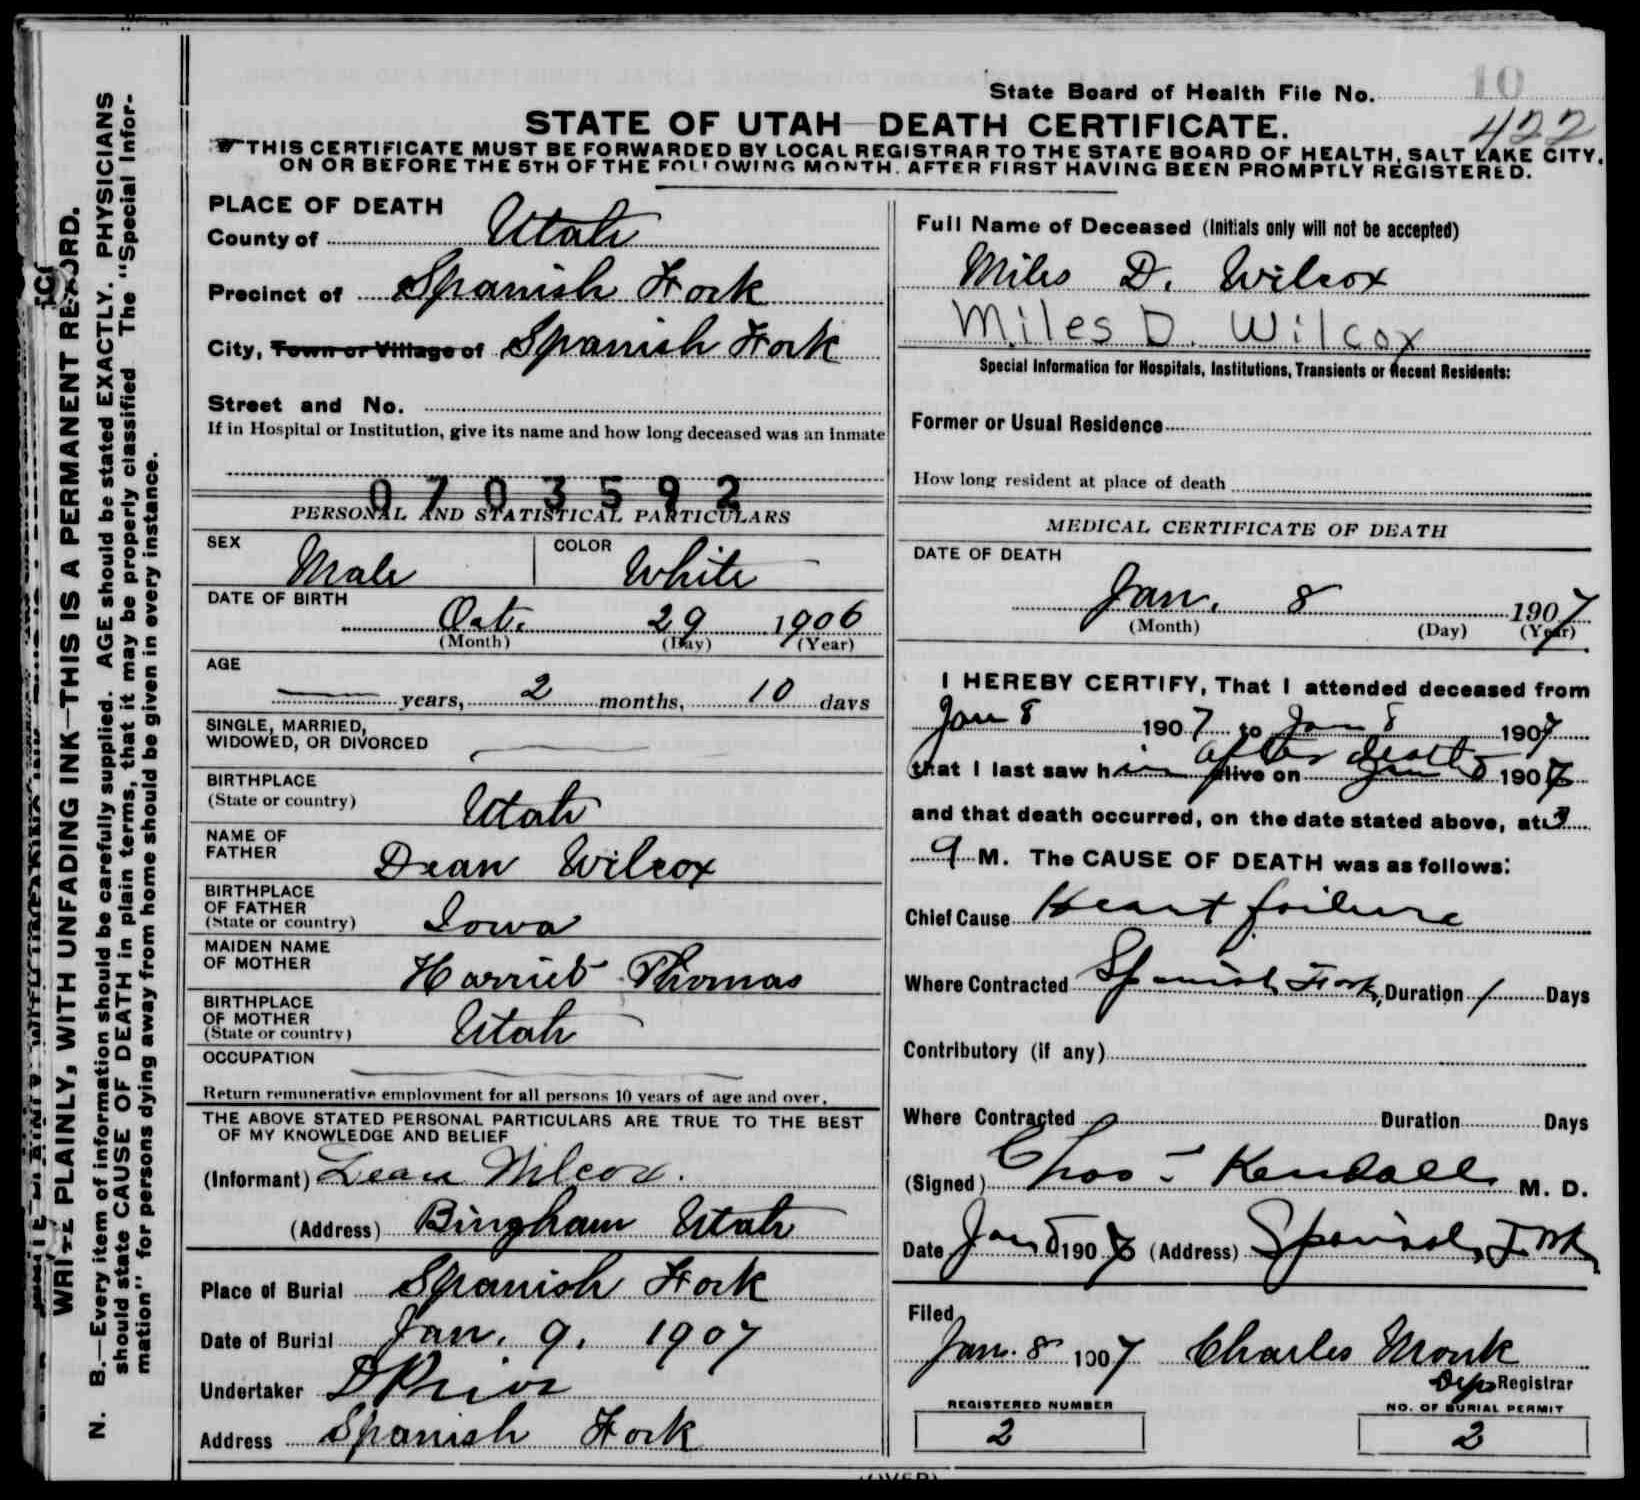 State Board of Health File No. 10
422
STATE OF UTAH—DEATH CERTIFICATE.
THIS CERTIFICATE MUST BE FORWARDED BY LOCAL REGISTRAR TO THE STATE BOARD OF HEALTH, SALT LAKE CITY,
ON OR BEFORE THE 5TH OF THE FOLLOWING MONTH, AFTER FIRST HAVING BEEN PROMPTLY REGISTERED.
PLACE OF DEATH
County of Utah
Precinct of Spanish Fork
City, Town or Village of Spanish Fork
Street and No.
If in Hospital or Institution, give its name and how long deceased was an inmate
0703592
PERSONAL AND STATISTICAL PARTICULARS
SEX Male COLOR White
DATE OF BIRTH
Oct. 29 1906
(Month) (Day) (Year)
AGE
years, 2 months, 10 days
SINGLE, MARRIED,
WIDOWED, OR DIVORCED
BIRTHPLACE
(State or country) Utah
NAME OF
FATHER Dean Wilcox
BIRTHPLACE
OF FATHER
(State or country) Iowa
MAIDEN NAME
OF MOTHER Harriet Thomas
BIRTHPLACE
OF MOTHER
(State or country) Utah
OCCUPATION
Return remunerative employment for all persons 10 years of age and over.
THE ABOVE STATED PERSONAL PARTICULARS ARE TRUE TO THE BEST
OF MY KNOWLEDGE AND BELIEF
(Informant) Dean Wilcox.
(Address) Bingham Utah
Place of Burial Spanish Fork
Date of Burial Jan. 9. 1907
Undertaker
Address Spanish Fork
Full Name of Deceased (Initials only will not be accepted)
Miles D. Wilcox
Miles D. Wilcox
Special Information for Hospitals, Institutions, Transients or Recent Residents:
Former or Usual Residence
How long resident at place of death
MEDICAL CERTIFICATE OF DEATH
DATE OF DEATH
Jan. 8 1907
(Month) (Day) (Year)
I HEREBY CERTIFY, That I attended deceased from
Jan 8 1907 to Jan 8 1907
after death
that I last saw him alive on Jan 8 1907
and that death occurred, on the date stated above, at 3
M. The CAUSE OF DEATH was as follows:
Chief Cause Heart failure
Where Contracted Spanish Fork, Duration 1 Days
Contributory (if any)
Where Contracted Duration Days
(Signed) Chas Kendall M. D.
Date Jan 8 1907 (Address) Spanish Fork
Filed
Jan. 8 1907 Charles Monk
Dep Registrar
REGISTERED NUMBER
2
NO. OF BURIAL PERMIT
2
(OVER)
WRITE PLAINLY, WITH UNFADING INK—THIS IS A PERMANENT RECORD.
N. B.—Every item of information should be carefully supplied. AGE should be stated EXACTLY. PHYSICIANS
should state CAUSE OF DEATH in plain terms, that it may be properly classified The "Special Infor-
mation" for persons dying away from home should be given in every instance.